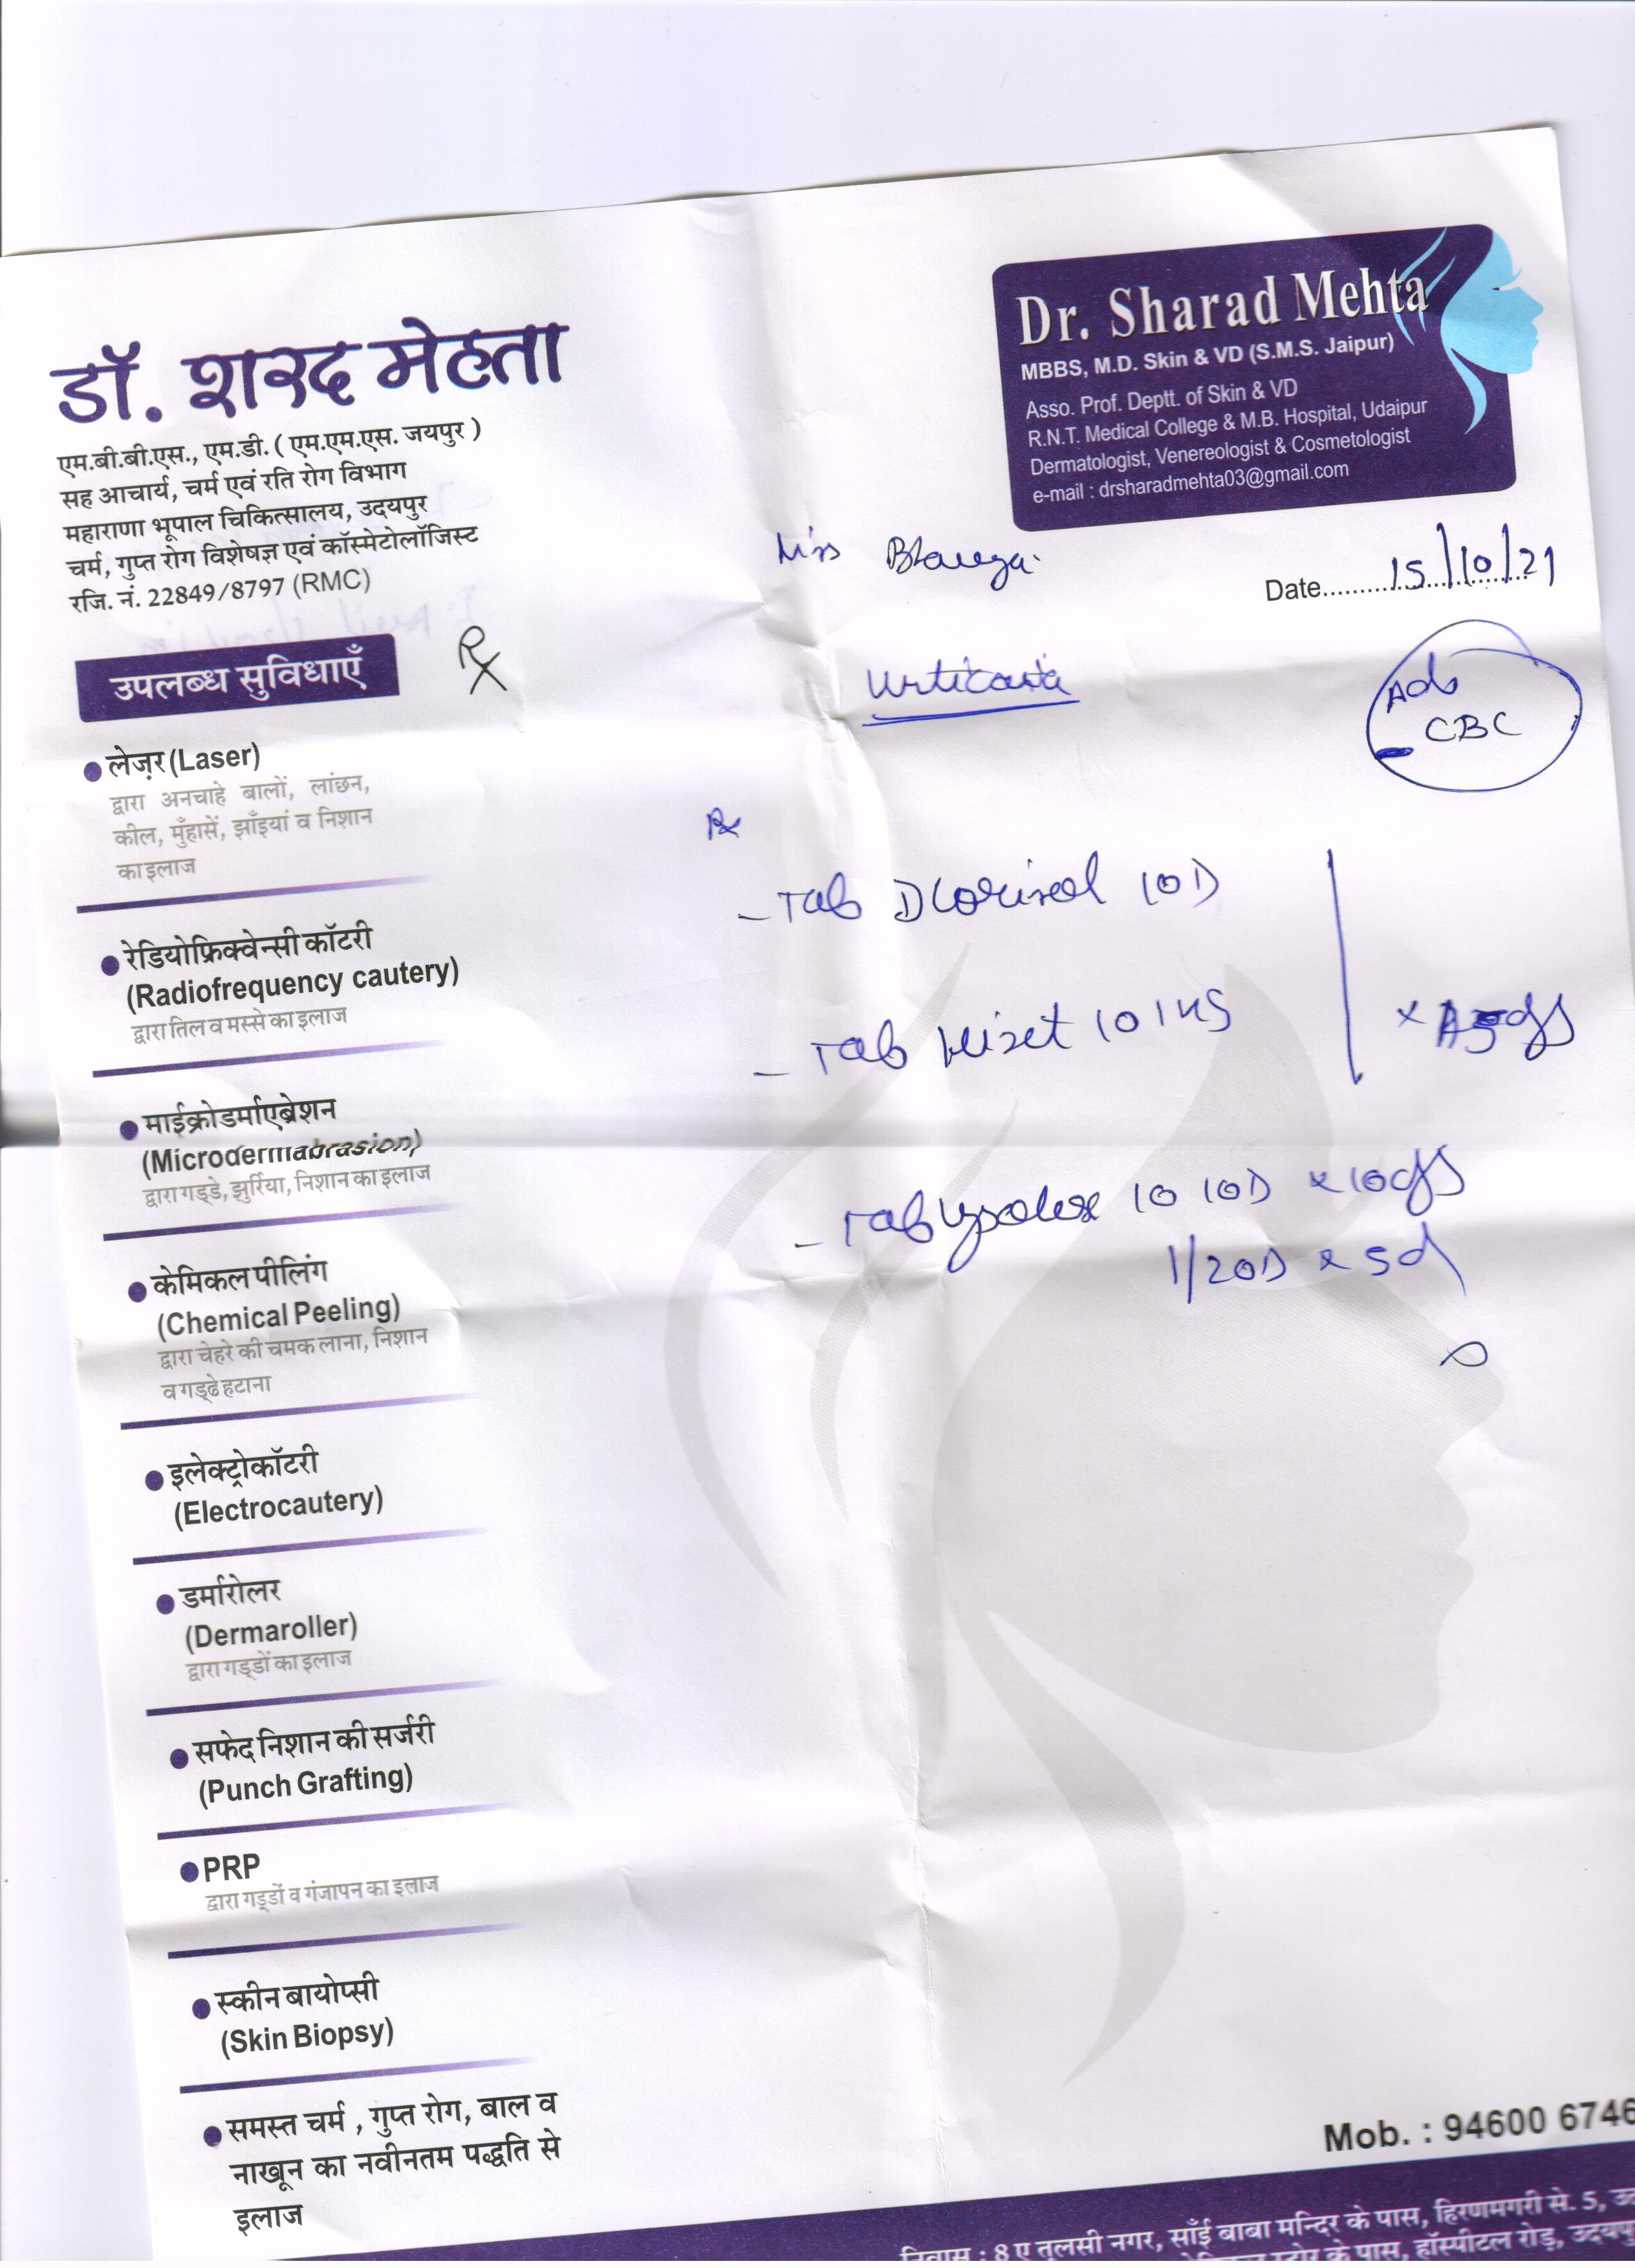 डॉ. शरद मेहता
एम.बी.बी.एस., एम.डी. ( एम.एम.एस. जयपुर )
सह आचार्य, चर्म एवं रति रोग विभाग
महाराणा भूपाल चिकित्सालय, उदयपुर
चर्म, गुप्त रोग विशेषज्ञ एवं कॉस्मेटोलॉजिस्ट
रजि. नं. 22849/8797 (RMC)
Dr. Sharad Mehta
MBBS, M.D. Skin & VD (S.M.S. Jaipur)
Asso. Prof. Deptt. of Skin & VD
R.N.T. Medical College & M.B. Hospital, Udaipur
Dermatologist, Venereologist & Cosmetologist
e-mail : drsharadmehta03@gmail.com
Date 15/10/21
Urticaria
CBC
Rx
उपलब्ध सुविधाएँ
लेज़र (Laser)
द्वारा अनचाहे बालों, लांछन,
कील, मुँहासें, झाँइयां व निशान
का इलाज
रेडियोफ्रिक्वेन्सी कॉटरी
(Radiofrequency cautery)
द्वारा तिल व मस्से का इलाज
माईक्रोडर्माएब्रेशन
(Microdermabrasion)
द्वारा गड्डे, झुर्रिया, निशान का इलाज
केमिकल पीलिंग
(Chemical Peeling)
द्वारा चेहरे की चमक लाना, निशान
व गड्ढे हटाना
इलेक्ट्रोकॉटरी
(Electrocautery)
डर्मारोलर
(Dermaroller)
द्वारा गड्डों का इलाज
सफेद निशान की सर्जरी
(Punch Grafting)
PRP
द्वारा गड्डों व गंजापन का इलाज
स्कीन बायोप्सी
(Skin Biopsy)
समस्त चर्म , गुप्त रोग, बाल व
नाखून का नवीनतम पद्धति से
इलाज
Rx
Tab 1OD
Tab 10 1HS
Tab 10 1OD x 10
1/2OD x 5d
Mob. : 94600 6746
निवास : 8 ए तुलसी नगर, साँई बाबा मन्दिर के पास, हिरणमगरी से. 5,
स्टोर के पास, हॉस्पीटल रोड़,